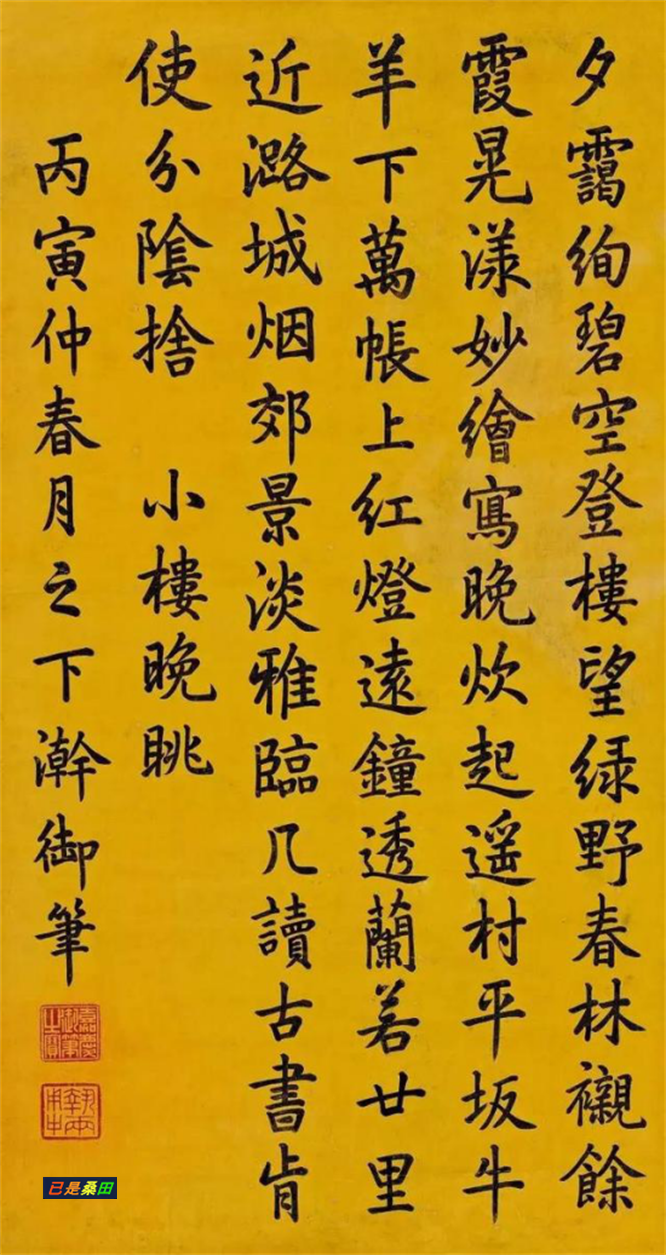 夕靄絢碧空登樓望緑野春林襯餘
霞晃漾妙繪寫晚炊起遥村平坂牛
羊下萬帳上红燈遠鐘透蘭若廿里
近潞城烟郊景淡雅臨几讀古書肯
使分陰捨 小樓晚眺
丙寅仲春月之下澣御筆
嘉慶御筆之寳
執兩用中
已是桑田